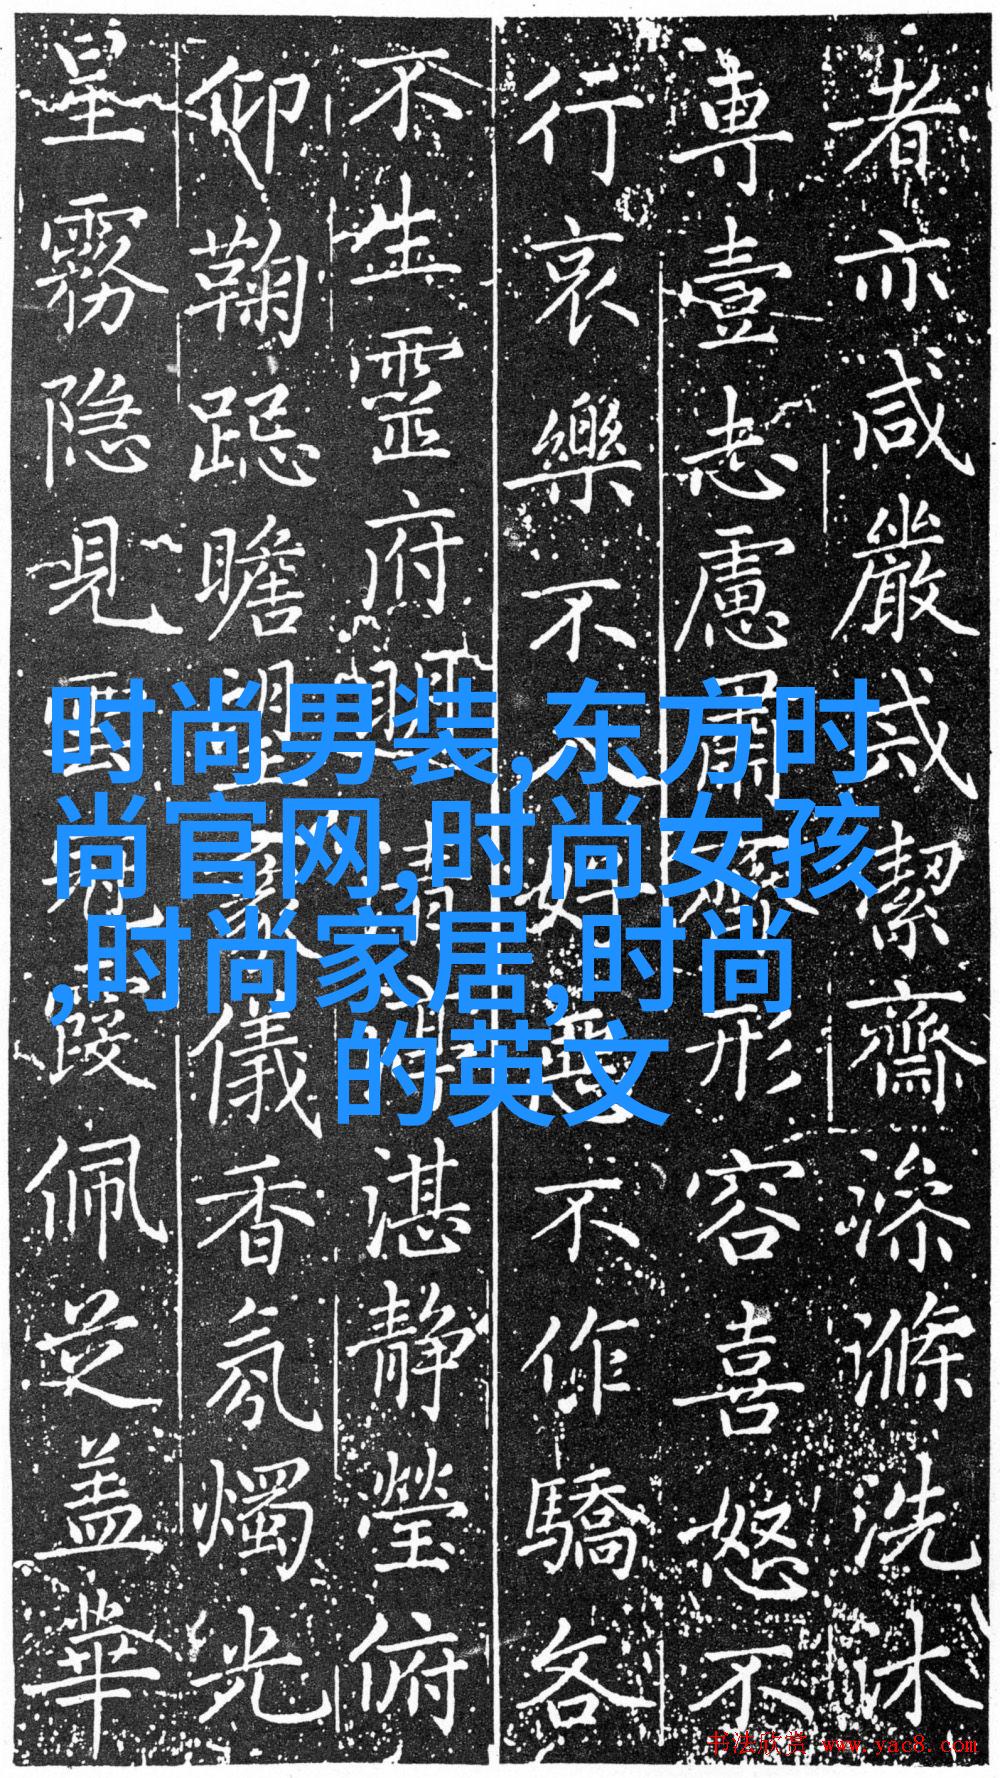 者亦咸嚴戒潔齋澡滌洗沐
專壹志慮肅形容喜怒不
行哀樂不入好惡不作驕各
不生靈府湛静瑩俯
仰鞠跽瞻望儀香氛燭光
星霧隐見雲霞佩芝盖華
时尚男装,东方时
尚官网,时尚女孩
,时尚家居,时尚
的英文
书法欣赏 www.yac8.com